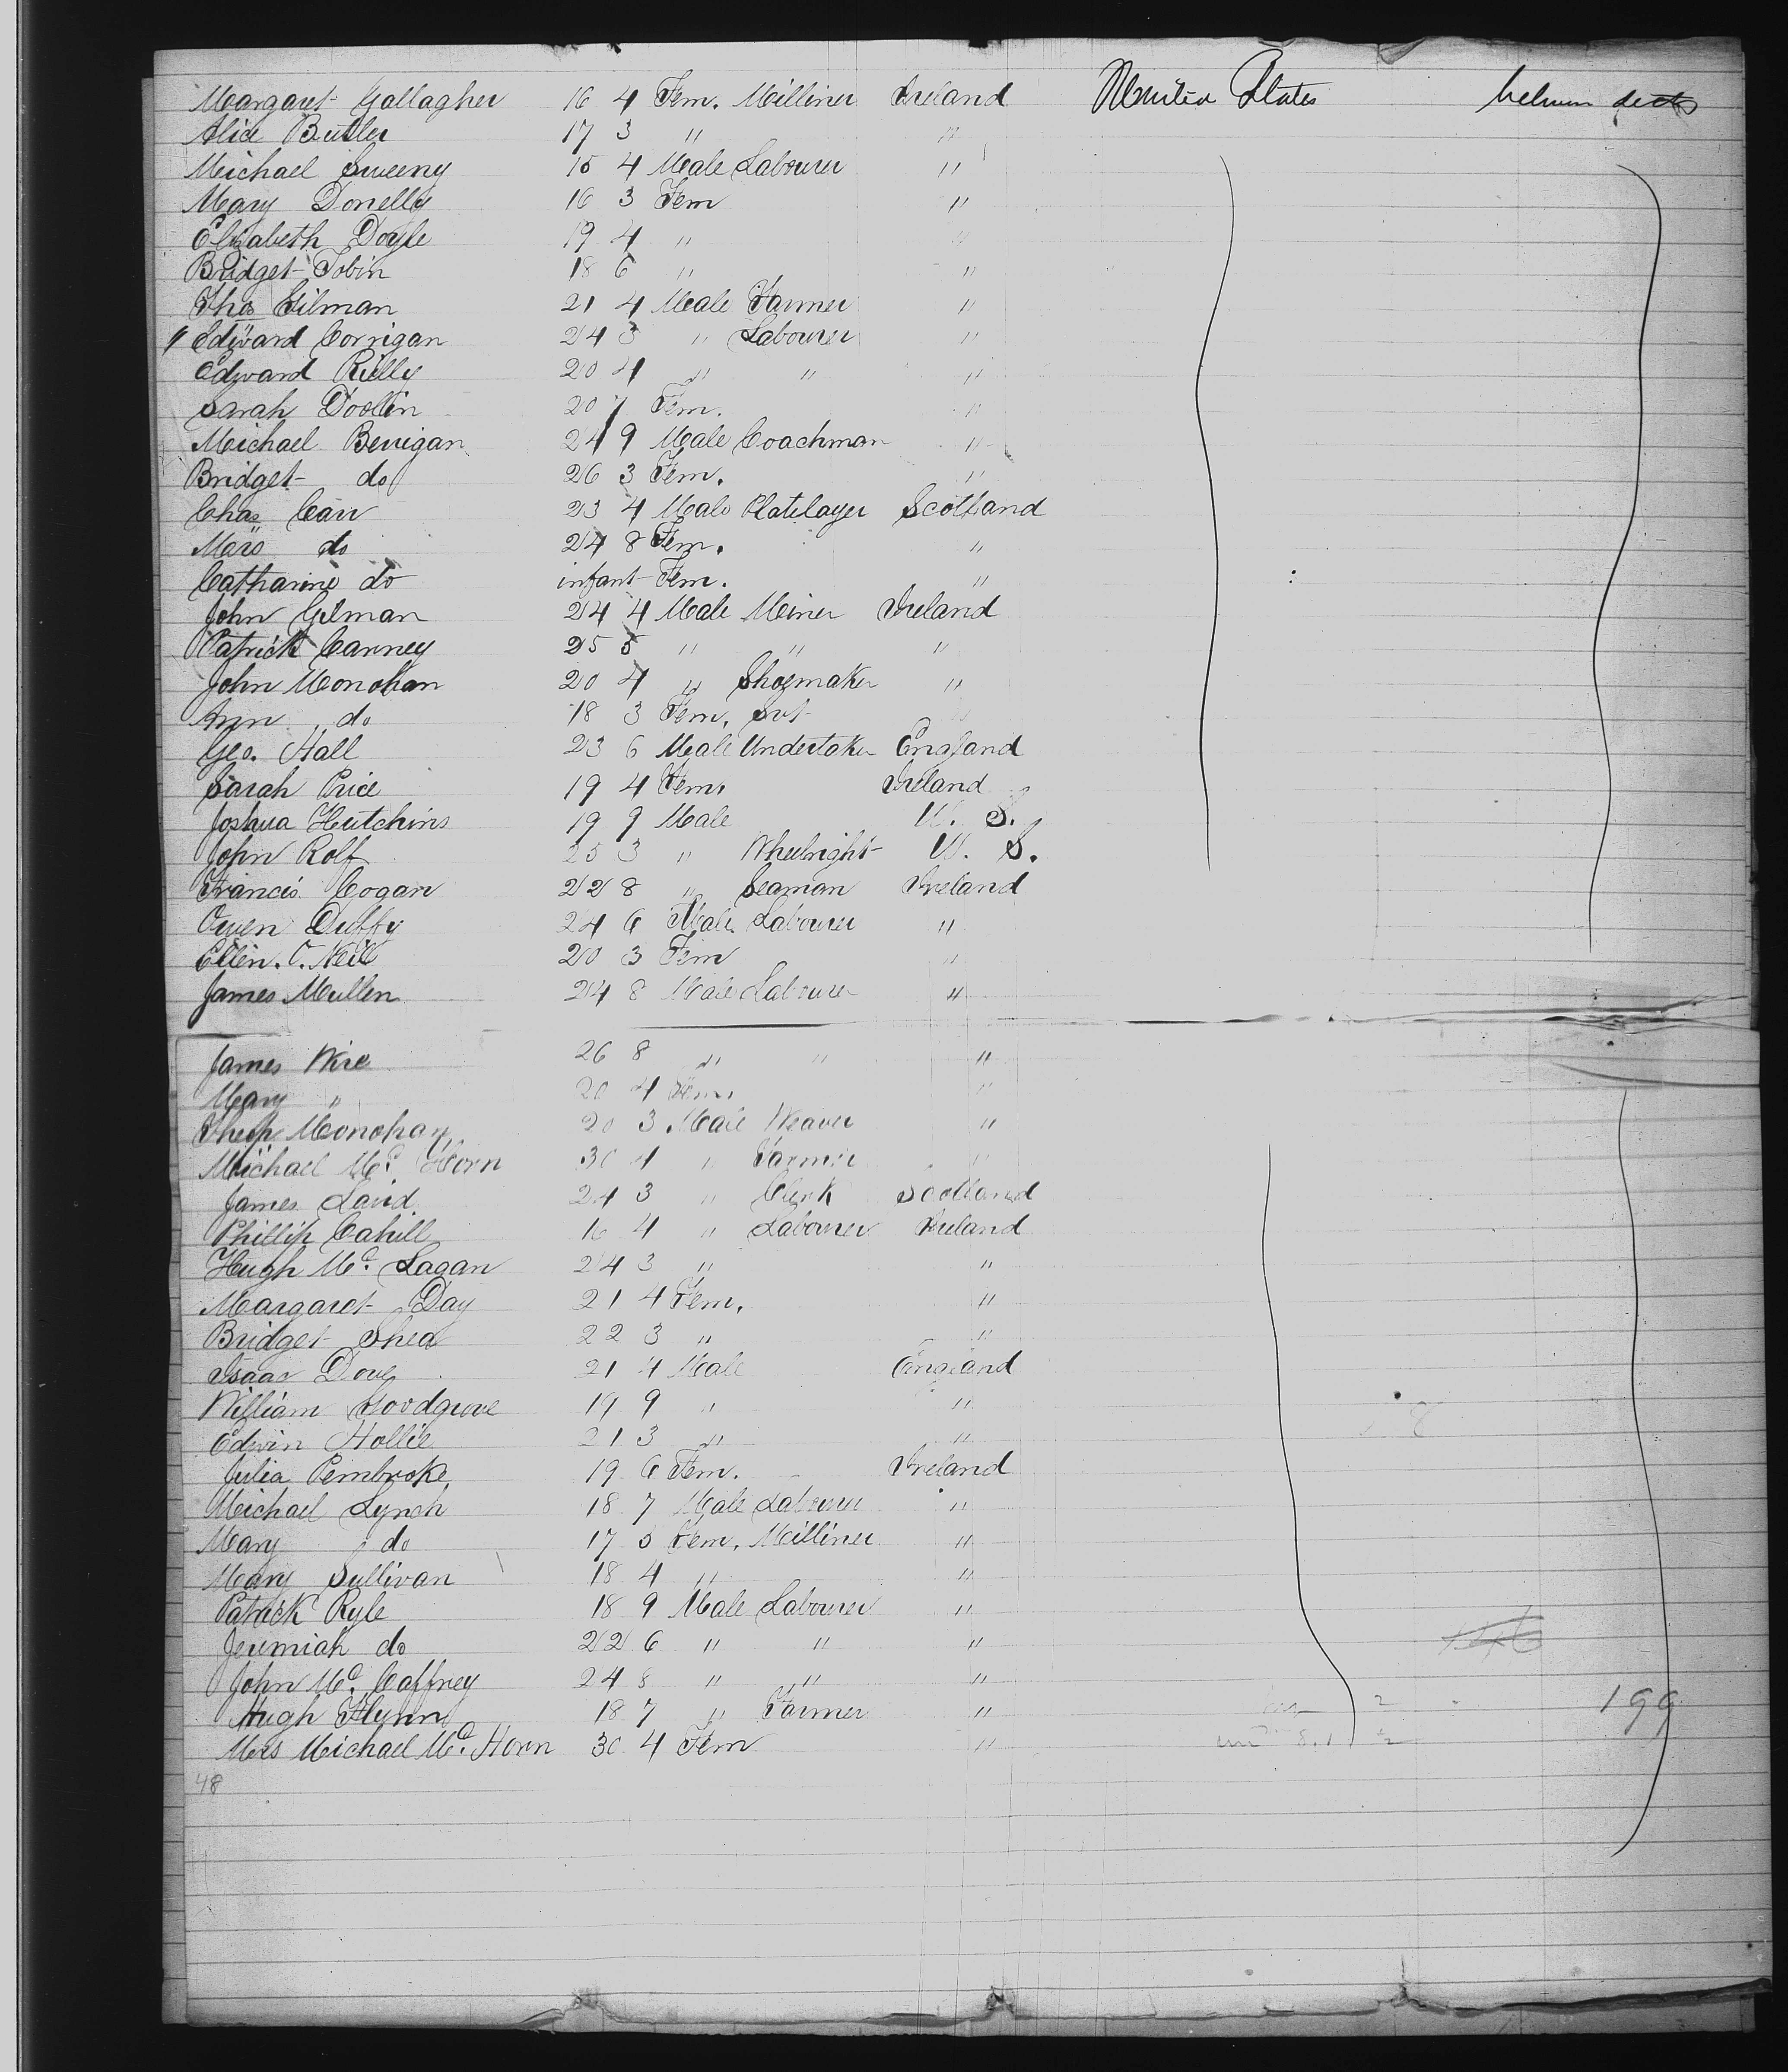 Margaret Gallagher 16 4 Fem. Milliner Ireland United States between decks
Alice Butler 17 3 " "
Michael Sweeny 15 4 Male Labourer "
Mary Donelly 16 3 Fem "
Elizabeth Doyle 19 4 " "
Bridget Tobin 18 6 " "
Thos Gilman 21 4 Male Farmer "
Edward Corrigan 24 3 " Labourer "
Edward Rielly 20 4 " " "
Sarah Doolin 20 7 Fem. "
Michael Benigan 24 9 Male Coachman "
Bridget do 26 3 Fem. "
Chas Carr 23 4 Male Platelayer Scotland
Mars do 24 8 Fem. "
Catharine do infant Fem. "
John Gilman 24 4 Male Miner Ireland
Patrick Canney 25 5 " " "
John Monohan 20 4 " Shoemaker "
Ann do 18 3 Fem. Svt "
Geo. Hall 23 6 Male Undertaker England
Sarah Price 19 4 Fem. Ireland
Joshua Hutchins 19 9 Male U. S.
John Rolf 25 3 " Wheelright U. S.
Francis Cogan 22 8 " Seaman Ireland
Owen Duffy 24 6 Male Labourer "
Ellen O. Neil 20 3 Fem "
James Mullen 24 8 Male Labourer "
James Wire 26 8 " " "
Mary " 20 4 Fem. "
Monohan 20 3 Male Weaver "
Michael Mc. Horn 30 4 " Farmer "
James Laird 24 3 " Clerk Scotland
Phillip Cahill 16 4 " Labourer Ireland
Hugh Mc. Lagan 24 3 " "
Margaret Day 21 4 Fem. "
Bridget Shea 22 3 " "
Isaac Doug 21 4 Male England
William Goodgrove 19 9 " "
Edwin Hollie 21 3 " "
Julia Pembroke 19 6 Fem. Ireland
Michael Lynch 18 7 Male Labourer "
Mary do 17 5 Fem. Milliner "
Mary Sullivan 18 4 " "
Patrick Ryle 18 9 Male Labourer "
Jeremiah do 22 6 " " "
John Mc. Caffrey 24 8 " " "
Hugh Flynn 18 7 " Farmer " 199
Mrs Michael Mc. Horn 30 4 Fem "
48